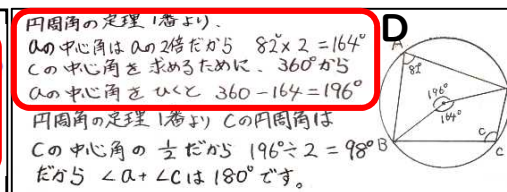 円周角の定理1番より、
aの中心角はaの2倍だから 82°×2=164°
Cの中心角を求めるために、360°から
aの中心角をひくと 360-164=196°
円周角の定理1番より Cの円周角は
Cの中心角の 1/2 だから 196°÷2=98°
だから ∠a+∠Cは180°です。
D
A
82°
196°
164°
B
C
C